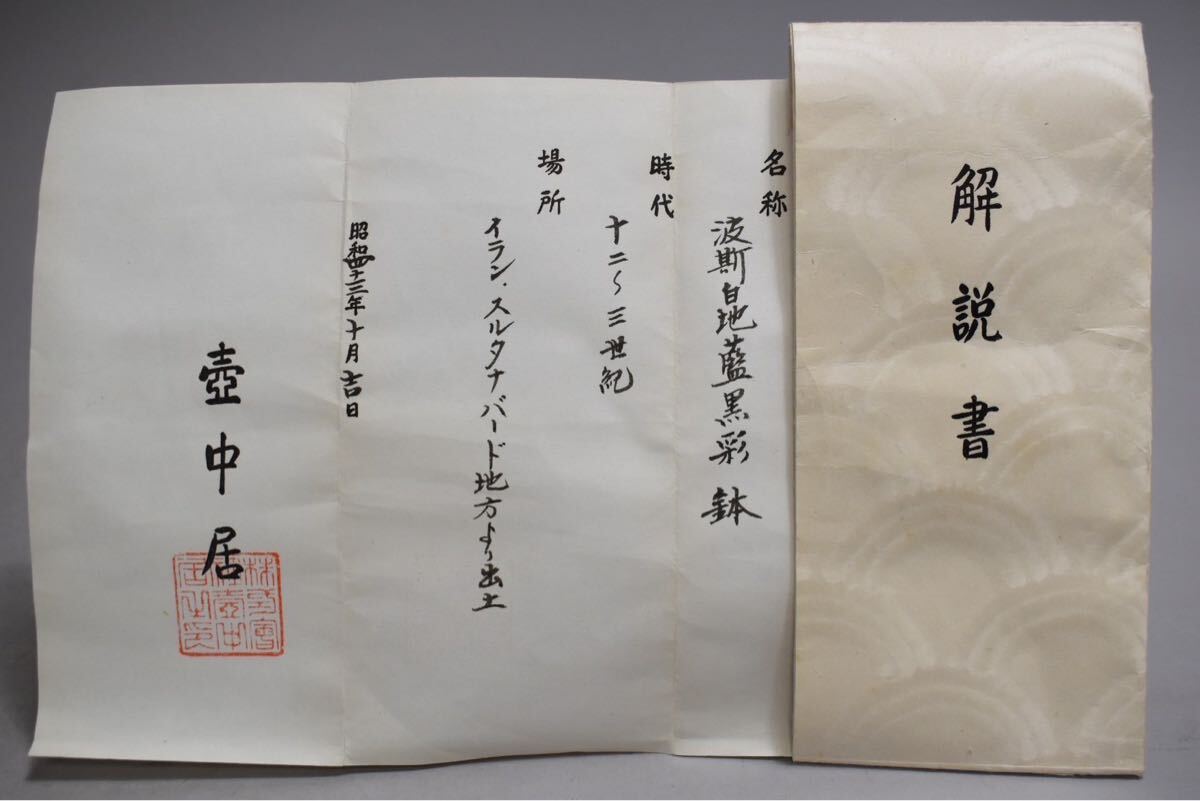 解説書
名称
波斯白地藍黒彩鉢
時代
十二〜三世紀
場所
イラン・スルタナバード地方より出土
昭和四十三年十月吉日
壺中居
株式會
社壺中
居之印